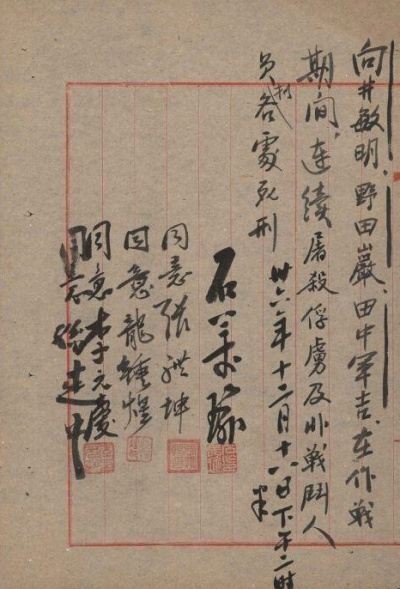 向井敏明、野田巖、田中軍吉、在作戰
期间、连續屠殺俘虜及非戰鬥人
员、各判處死刑
卅六年十二月十六日下午二时半
石美瑜
同意 張體坤
同意 龍鍾煌
同意 李元慶
同意 徐建中